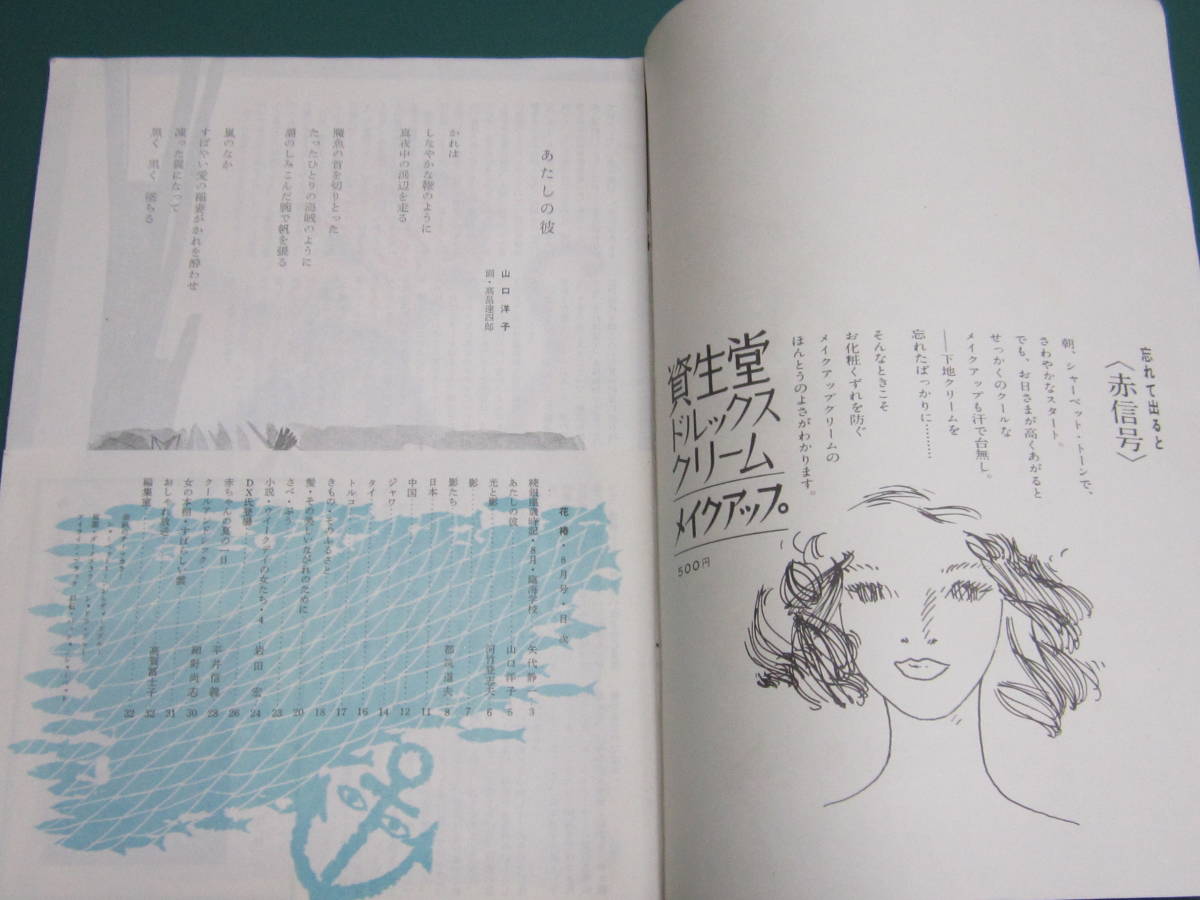 忘れて出ると
〈赤信号〉
朝、シャーベット・トーンで、
さわやかなスタート。
でも、お日さまが高くあがると
せっかくのクールな
メイクアップも汗で台無し。
――下地クリームを
忘れたばっかりに………
そんなときこそ
お化粧くずれを防ぐ
メイクアップクリームの
ほんとうのよさがわかります。
資生堂
ドルックス
クリーム
メイクアップ。
500円
あたしの彼
山口洋子
画・高畠達四郎
かれは
しなやかな鞭のように
真夜中の浜辺を走る
魔魚の首を切りとった
たったひとりの海賊のように
潮のしみこんだ腕で帆を張る
嵐のなか
すばやい愛の稲妻がかれを酔わせ
凍った翼になって
黒く 黒く 墜ちる
花椿・8月号・目次
8月・臨海学校 矢代静一 3
あたしの彼 山口洋子 5
光と影 6
影 7
影たち 都筑道夫 8
日本 11
中国 12
ジャワ 14
タイ 16
トルコ 17
きもの・そのふるさと 18
髪・その美しいながれのために 20
23
小説・ウイークデイの女たち・4 岩田宏 24
DX氏登場 26
赤ちゃんの夏の一日 平井信義 28
クールアンドシック 30
女の本棚・すばらしい 細野尚志 31
おしゃれ教室 高賀冨士子 32
編集室 32